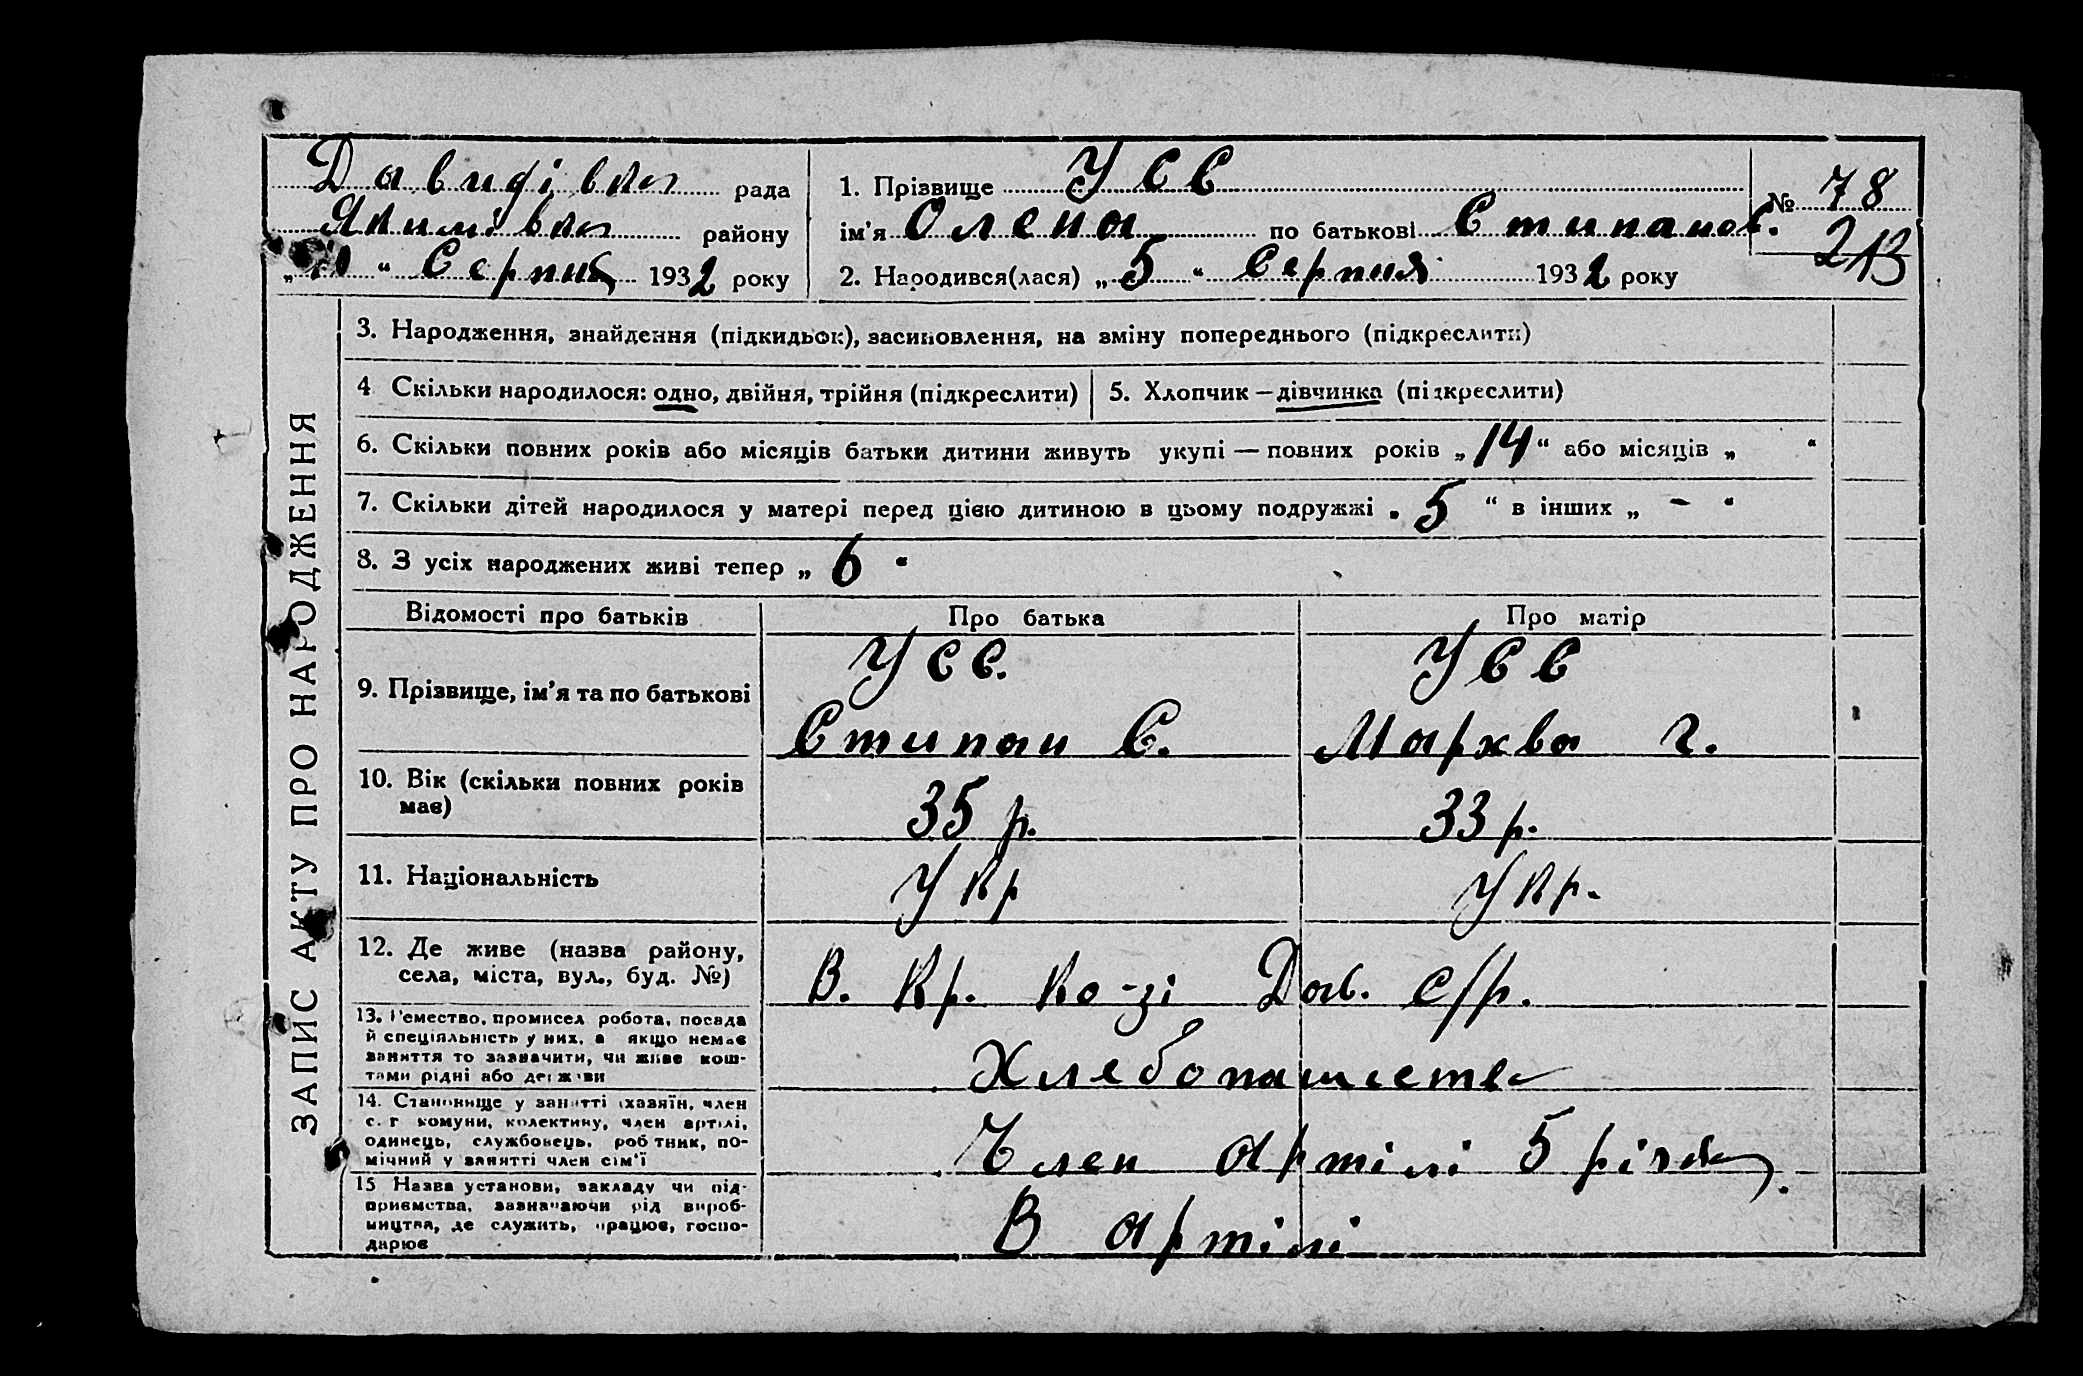 Давидівка рада
Якимівка району
„10“ Серпня 1932 року
1. Прізвище Усв
ім'я Олена по батькові Стипанов.
2. Народився(лася) „5“ Серпня 1932 року
№ 78
213
ЗАПИС АКТУ ПРО НАРОДЖЕННЯ
3. Народження, знайдення (підкидьок), засиновлення, на зміну попереднього (підкреслити)
4 Скільки народилося: одно, двійня, трійня (підкреслити)
5. Хлопчик — дівчинка (підкреслити)
6. Скільки повних років або місяців батьки дитини живуть укупі — повних років „14“ або місяців „ “
7. Скільки дітей народилося у матері перед цією дитиною в цьому подружжі „5“ в інших „ - “
8. З усіх народжених живі тепер „6“
Відомості про батьків Про батька Про матір
9. Прізвище, ім'я та по батькові
Усв. Усв
Стипан С. Мархва г.
10. Вік (скільки повних років
має)
35 р. 33 р.
11. Національність Укр Укр.
12. Де живе (назва району,
села, міста, вул., буд. №)
В. Кр. ко-зі Дав. с/р.
13. Ремество, промисел робота, посада
й спеціяльність у них, а якщо немає
заняття то зазначити, чи живе кош-
тами рідні або держави
Хлебопашеств
14. Становище у занятті (хазяїн, член
с. г комуни, колективу, член артілі,
одинець, службовець, робтник, по-
мічний у занятті член сім'ї
Член артілі 5 річ
15 Назва установи, закладу чи під-
приємства, зазначаючи рід вироб-
ництва, де служить, працює, госпо-
дарює
В артілі